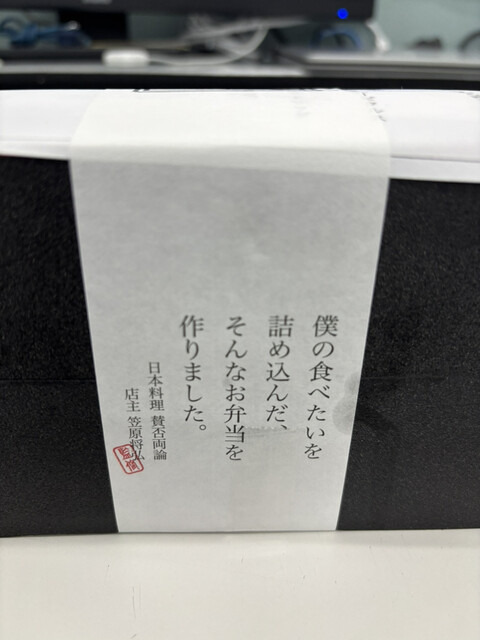 僕の食べたいを
詰め込んだ、
そんなお弁当を
作りました。
日本料理 賛否両論
店主 笠原将弘
監修